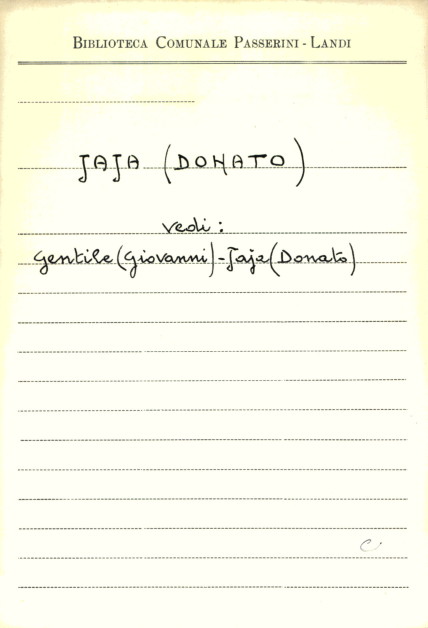 BIBLIOTECA COMUNALE PASSERINI - LANDI
JAJA (DONATO)
vedi:
Gentile (Giovanni) - Jaja (Donato)
C